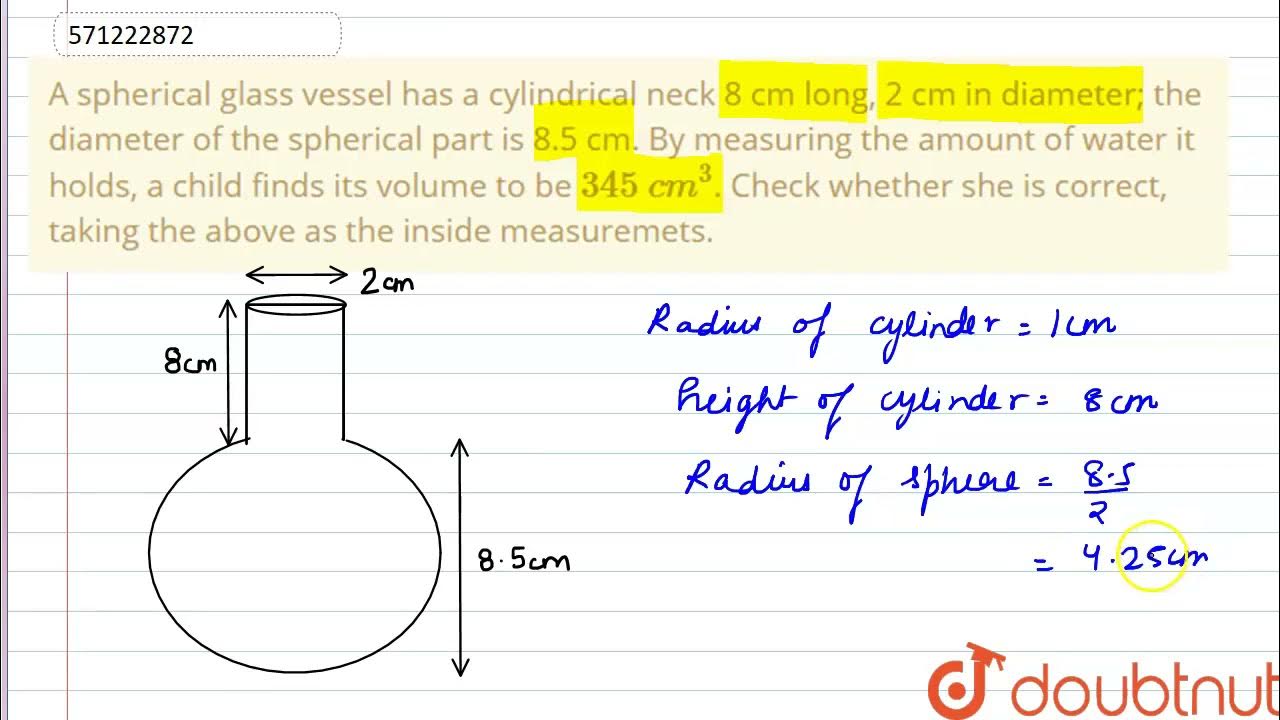 571222872
A spherical glass vessel has a cylindrical neck 8 cm long, 2 cm in diameter; the
diameter of the spherical part is 8.5 cm. By measuring the amount of water it
holds, a child finds its volume to be 345 cm³. Check whether she is correct,
taking the above as the inside measuremets.
2cm
8cm
8.5cm
Radius of cylinder = 1cm
height of cylinder = 8cm
Radius of sphere = 8.5/2
= 4.25cm
doubtnut